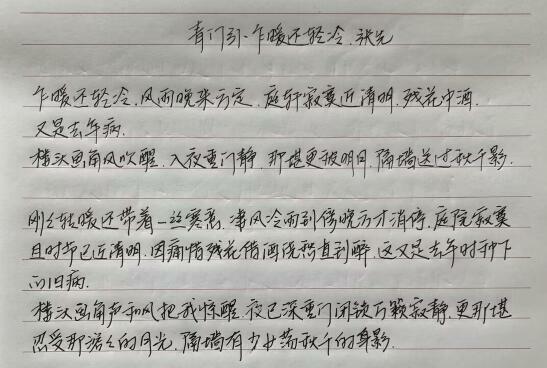 青门引·乍暖还轻冷.张先
乍暖还轻冷.风雨晚来方定.庭轩寂寞近清明.残花中酒.
又是去年病.
楼头画角风吹醒.入夜重门静.那堪更被明月.隔墙送过秋千影.
刚刚转暖还带着一丝寒意.凄风冷雨到傍晚方才消停.庭院寂寞
且时节已近清明.因痛惜残花借酒浇愁直到醉.这又是去年时种下
的旧病.
楼头画角声和风把我惊醒.夜已深重门闭锁万籁寂静.更那堪
忍受那溶溶的月光.隔墙有少女荡秋千的身影.